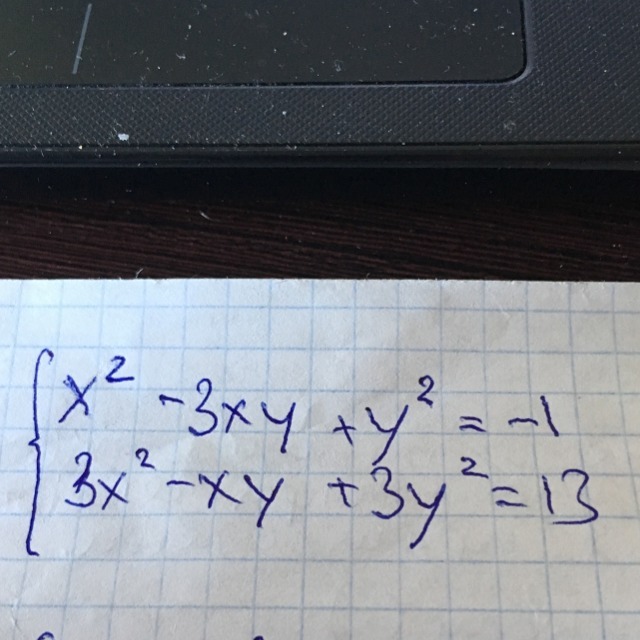 x² -3xy +y² = -1
3x² -xy +3y² = 13